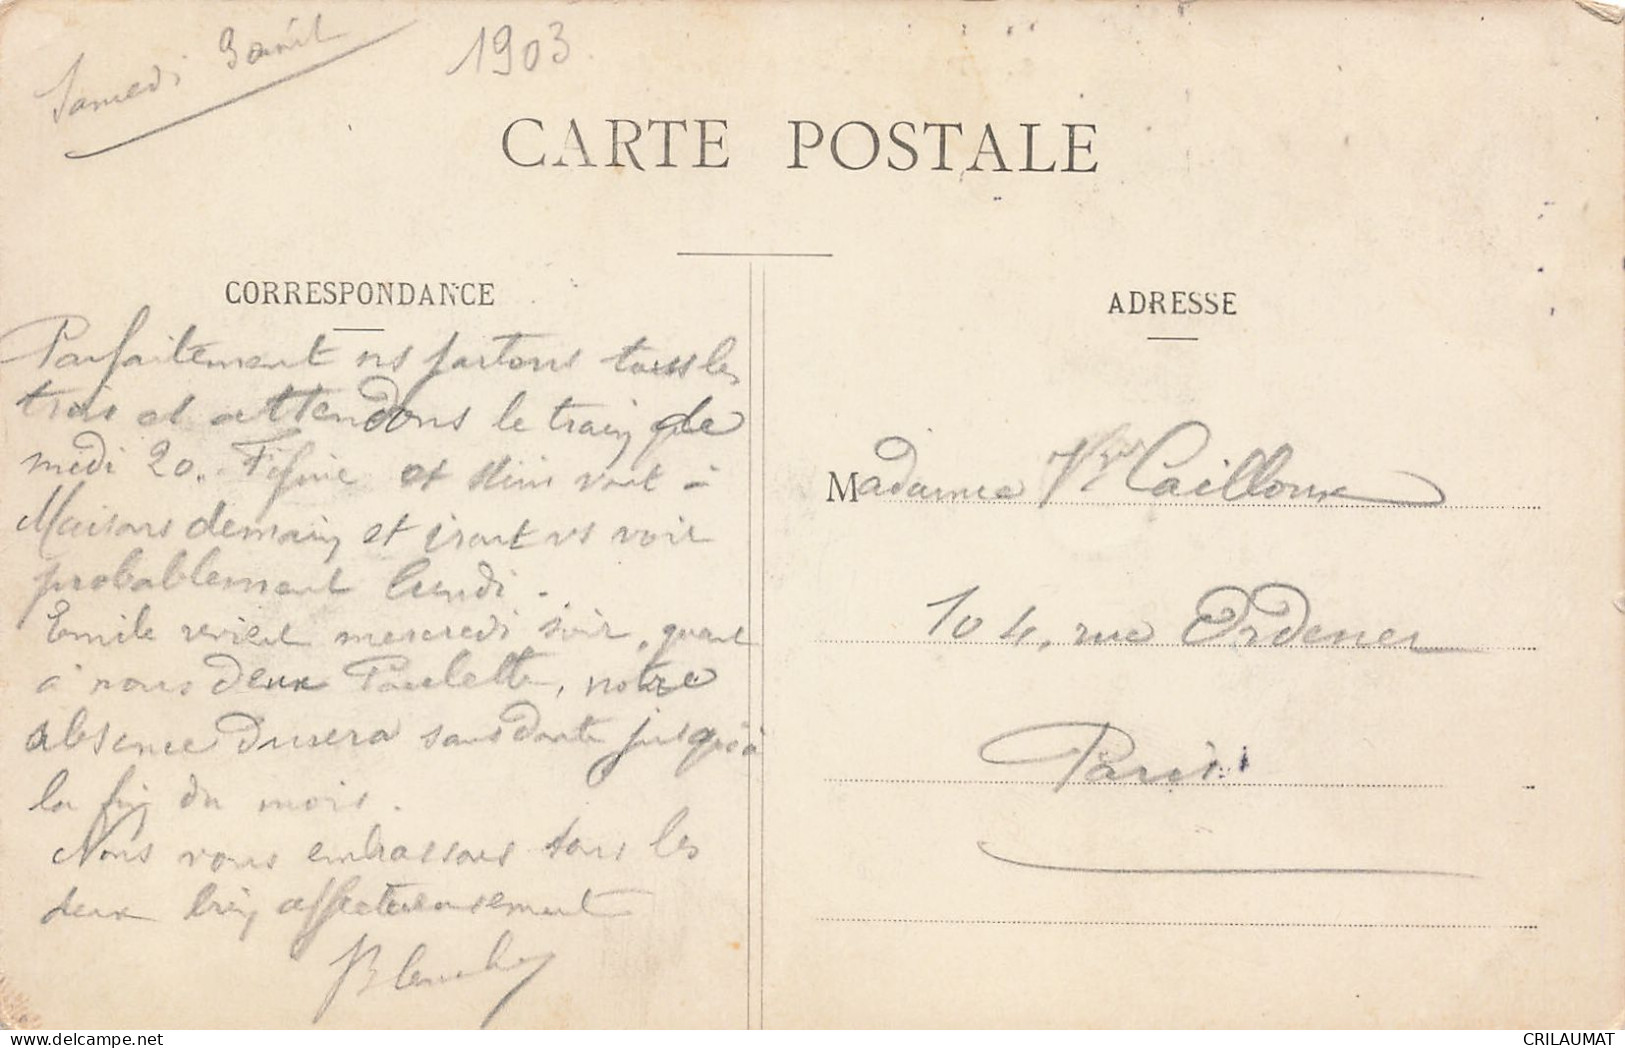 Samedi 3 août
1903
CARTE POSTALE
CORRESPONDANCE
Parfaitement ns partons tous les
trois et attendons le train de
midi 20. Fifine et vont à
Maisons demain et iront vs voir
probablement lundi.
Emile revient mercredi soir, quant
à nous deux Paulette, notre
absence durera sans doute jusqu'à
la fin du mois.
Nous vous embrassons tous les
deux bien affectueusement
Blanche
ADRESSE
Madame Vve Cailloux
104, rue Ordener
Paris
CRILAUMAT